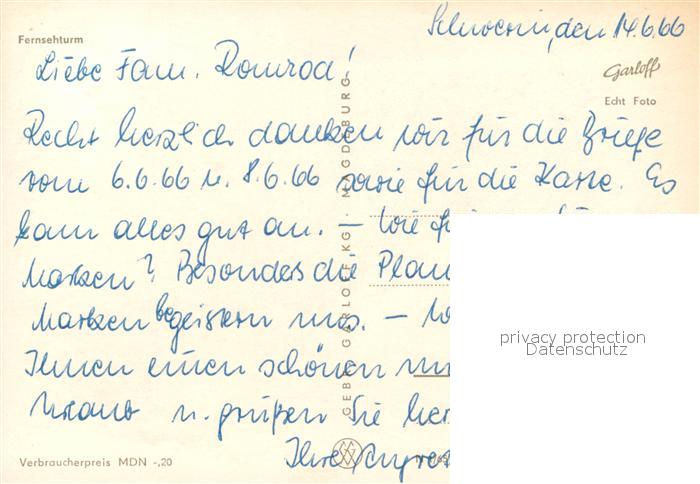 Schwerin, den 14.6.66
Fernsehturm
Liebe Fam. Romrod!
Garloff
Echt Foto
Recht herzlich danken wir für die Briefe
vom 6.6.66 u. 8.6.66 sowie für die Karte. Es
kam alles gut an. – Wie
Marken? Besonders die
Marken begeistern uns. –
Ihnen einen schönen
Urlaub u. grüßen Sie
Ihre
Verbraucherpreis MDN -,20
GEBR. GARLOFF KG · MAGDEBURG
privacy protection
Datenschutz